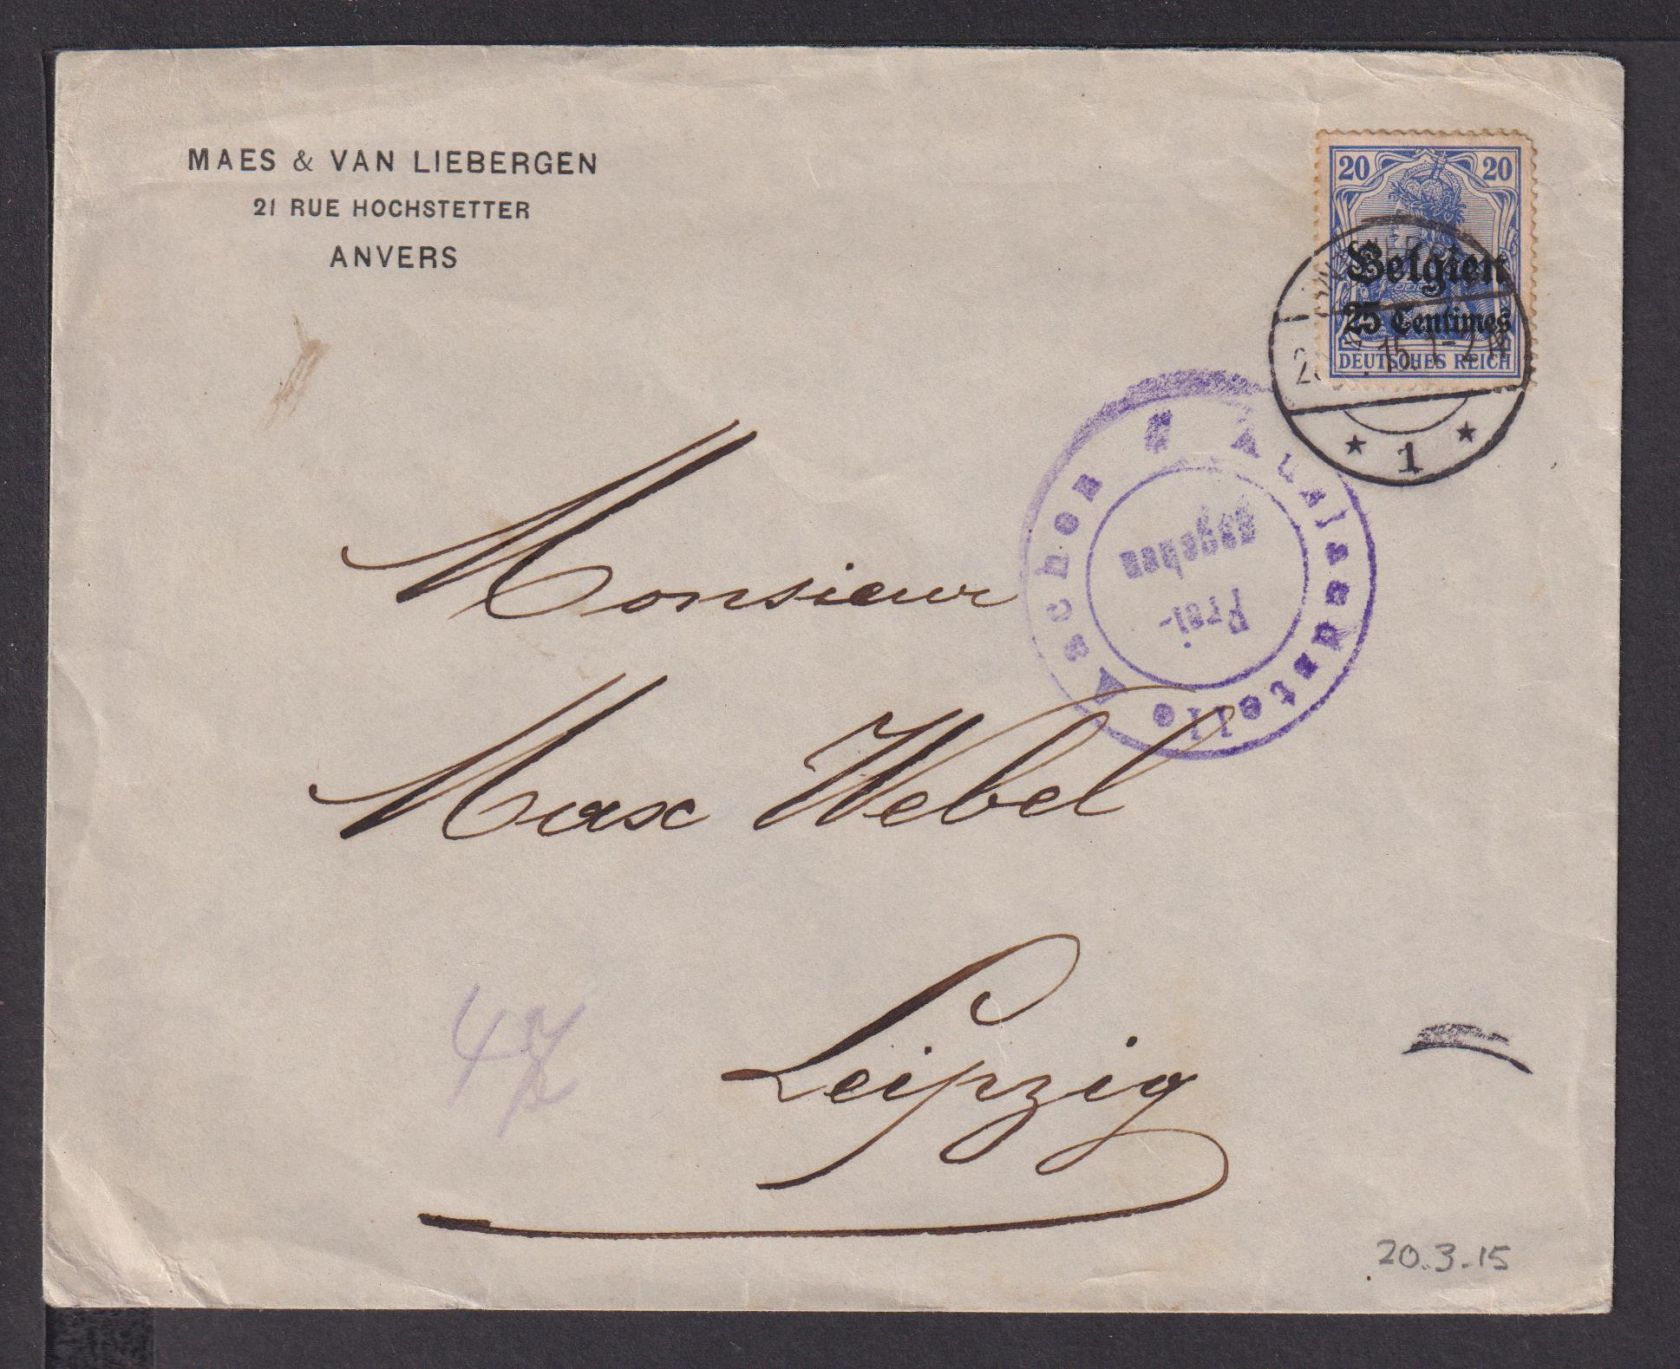 MAES & VAN LIEBERGEN
21 RUE HOCHSTETTER
ANVERS
20 20
Belgien
25 Centimes
DEUTSCHES REICH
15. 1-2 N
* 1 *
Auslandstelle Aachen
Frei-
gegeben
Monsieur
Max Webel
Leipzig
20.3.15